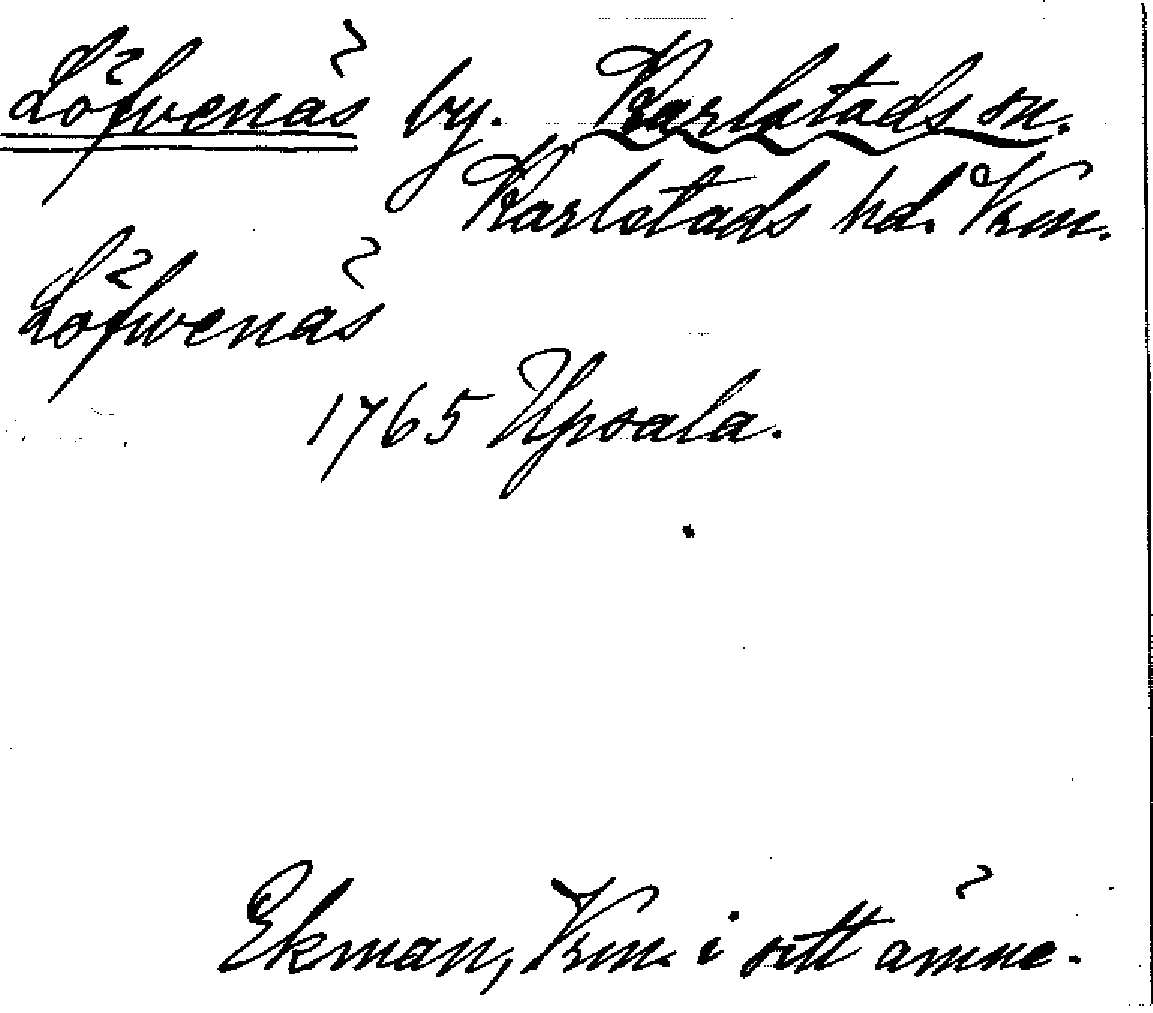 Löfvenäs by. Karlstads sn.
Karlstads hd. Vrm.
Löfwenäs
1765 Upsala.
Ekman, Vrm. i sitt ämne.